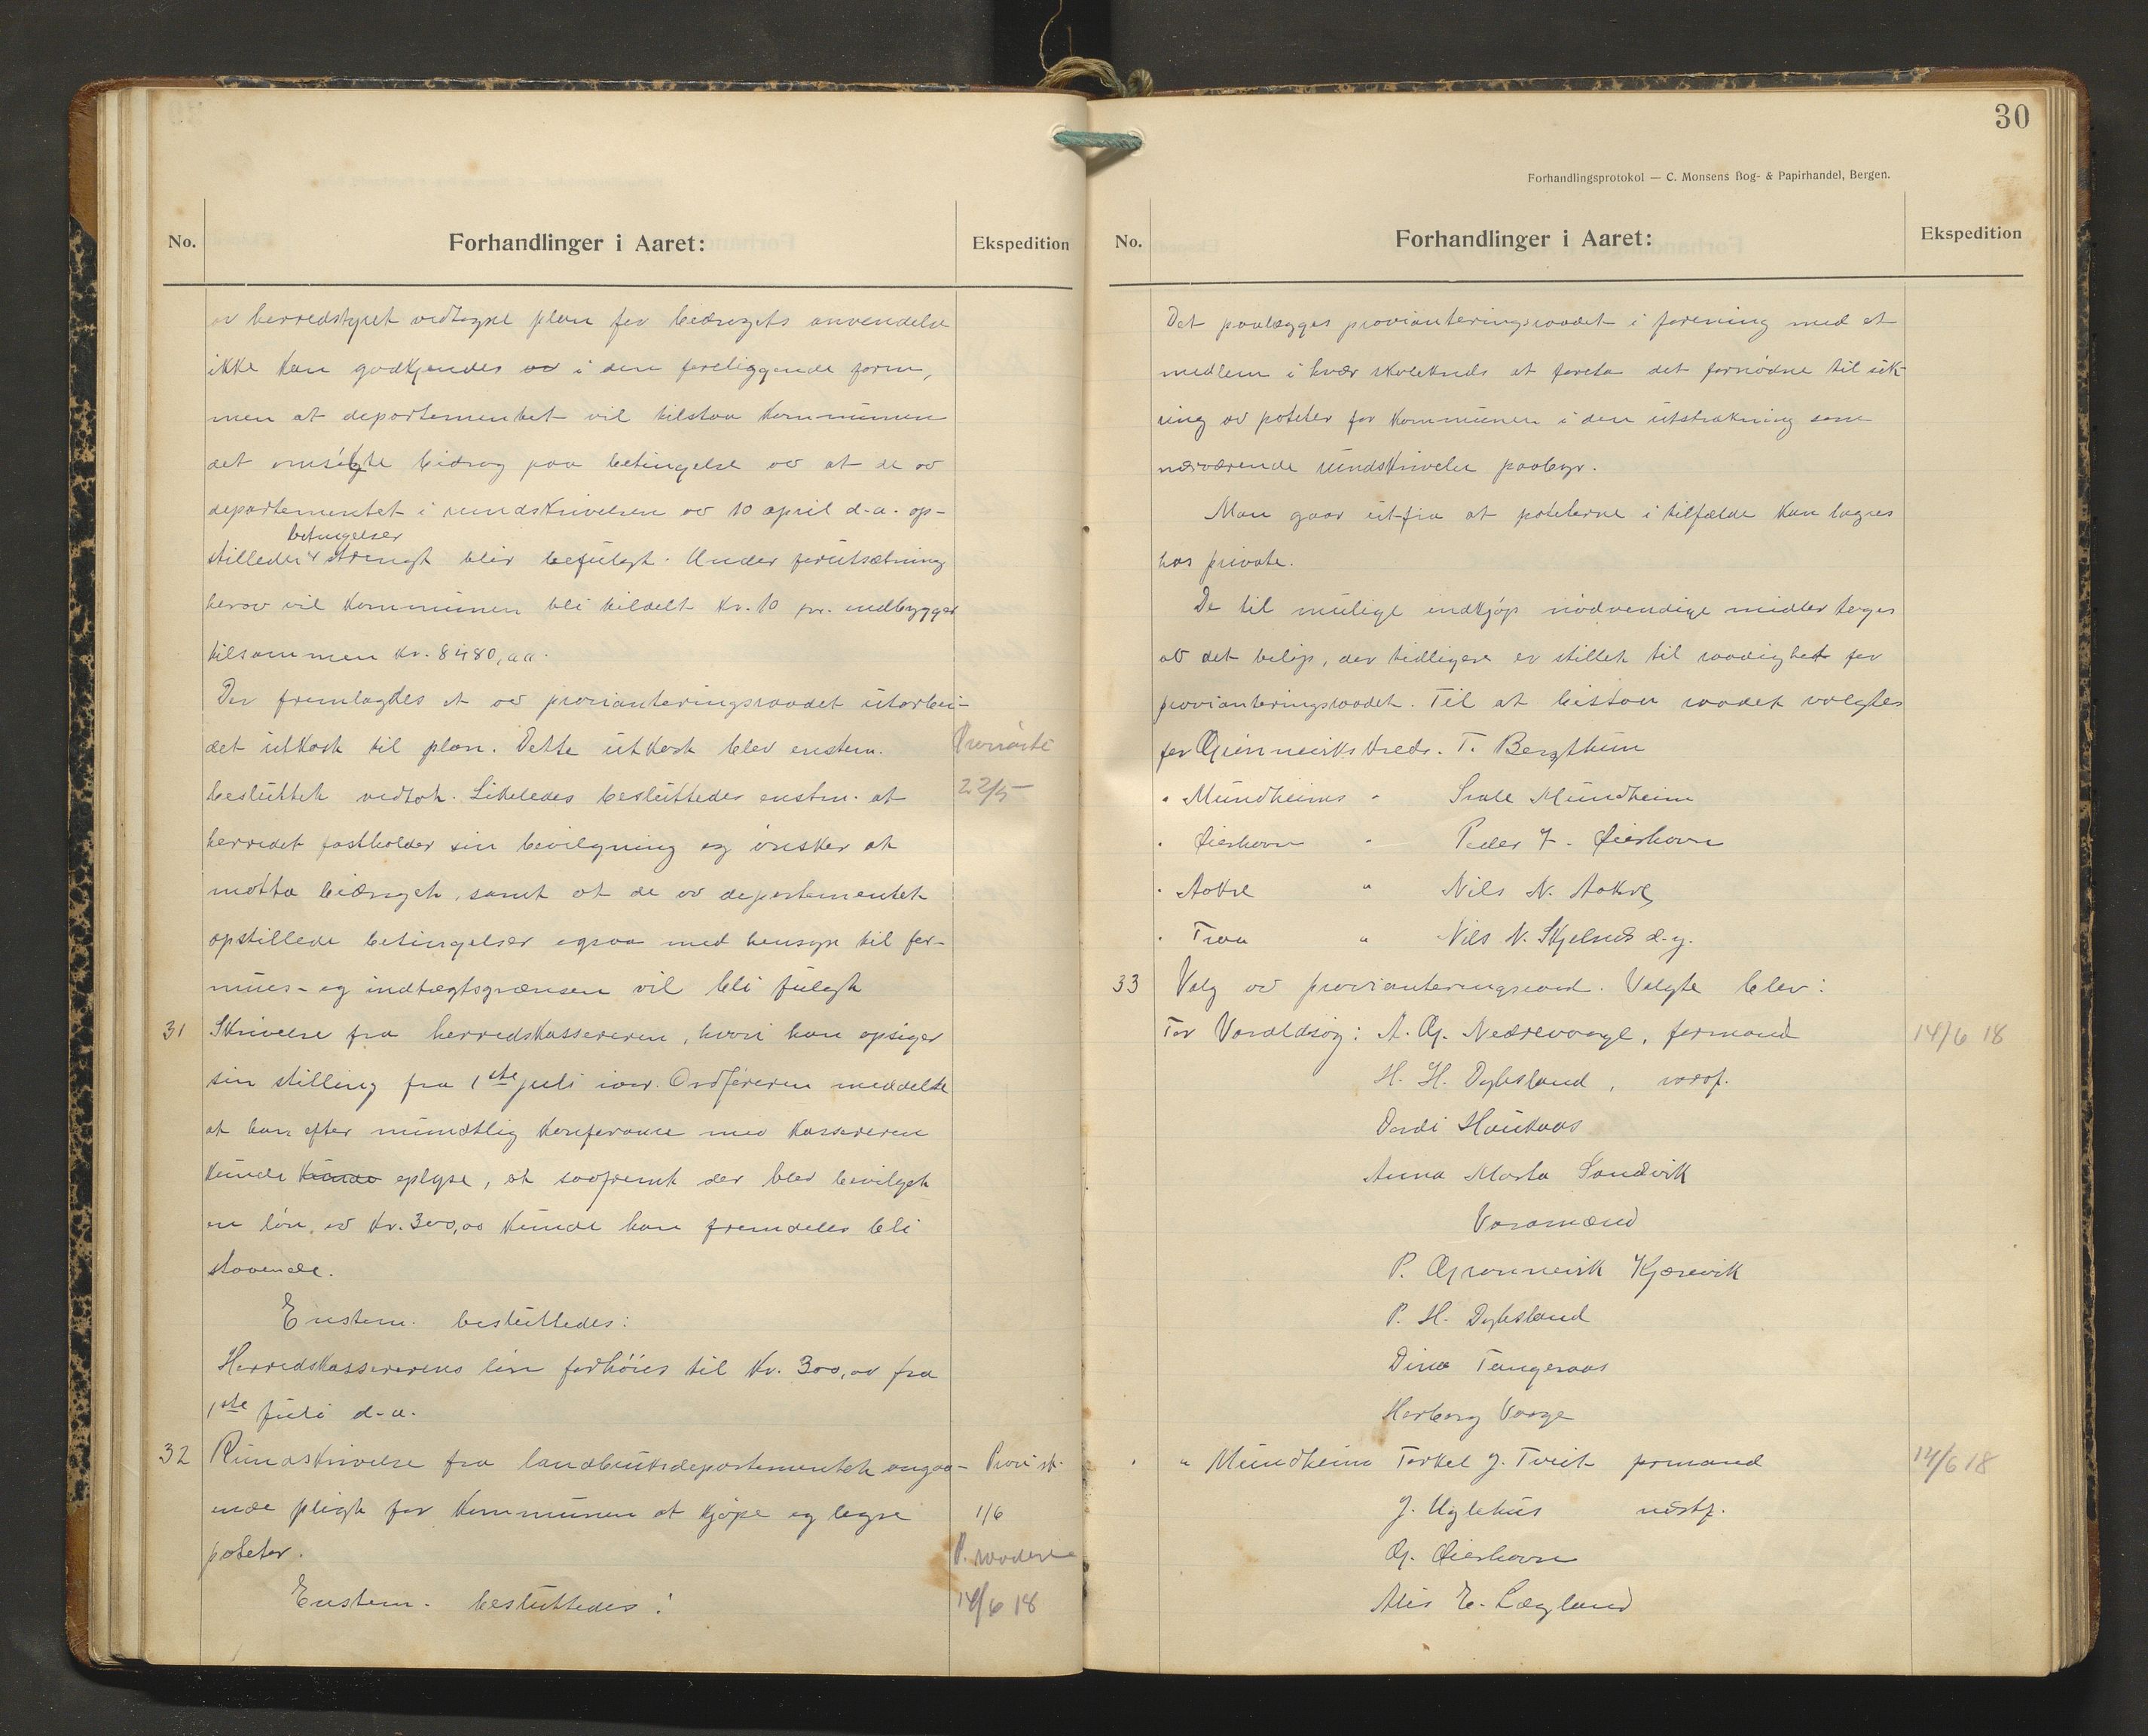 No.
Forhandlinger i Aaret:
Ekspedition
av herredstyret vedtagne plan for bidragets anvendelse
ikke kan godkjendes av i den foreliggende form,
men at departementet vil tilstaa kommunen
det omsøgte bidrag paa betingelse av at de av
departementet i rundskrivelsen av 10 april d.a. op-
betingelser
stillede strengt blir befulgt. Under forutsætning
herav vil kommunen bli tildelt kr. 10 pr. indbygger
tilsammen kr. 8480,00.
Der fremlagdes et av provianteringsraadet utarbei-
det utkast til plan. Dette utkast blev enstem.
besluttet vedtat. Likeledes besluttedes enstem. at
22/5
herredet fastholder sin bevilgning og ønsker at
motta bidraget, samt at de av departementet
opstillede betingelser ogsaa med hensyn til for-
mues- og indtægtsgrænsen vil bli fulgt
31 Skrivelse fra herredskassereren, hvori han opsiger
sin stilling fra 1ste juli iaar. Ordføreren meddelte
at han efter mundtlig konferance med kassereren
kunde kunde oplyse, at saafremt der blev bevilget
en løn av kr. 300,00 kunde han fremdeles bli
staaende.
Enstem. besluttedes:
Herredskassererens løn forhøies til kr. 300,00 fra
1ste juli d.a.
32 Rundskrivelse fra landbruksdepartementet angaa-
ende pligt for kommunen at kjøpe og lagre
1/6
poteter.
P. raadene
Enstem. besluttedes:
14/6 18
30
Forhandlingsprotokol — C. Monsens Bog- & Papirhandel, Bergen.
No.
Forhandlinger i Aaret:
Ekspedition
Det paalægges provianteringsraadet i forening med et
medlem i hvær skolekreds at foreta det fornødne til sik-
ring av poteter for kommunen i den utstrækning som
nærværende rundskrivelse paabyr.
Man gaar ut fra at poteterne i tilfælde kan lagres
hos private.
De til mulige indkjøp nødvendige midler tages
av det beløp, der tidligere er stillet til raadighet for
provianteringsraadet. Til at bistaa raadet valgtes
for Gjønneviks kreds. T. Bergthun
" Mundheims " Mundheim
" Øierhavn " Peder J. Øierhavn
" Aakre " Nils N. Aakre
" Traa " Nils N. Skjelnes d.y.
33 Valg av provianteringsraad. Valgte blev:
For Varaldsøy: A. G. Nedrevaage, formand
14/6 18
H. H. Dybsland, varaf.
Haukaas
Anna Marta Sandvik
Varamænd
P. Gjønnevik Kjærevik
P. H. Dybsland
Dina Tangeraas
Herborg Vaage
" Mundheim Torkel J. Tveit formand
14/6 18
J. Uglehus næstf.
G. Øierhavn
E. Lægland